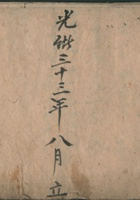 光緒三十三年八月立